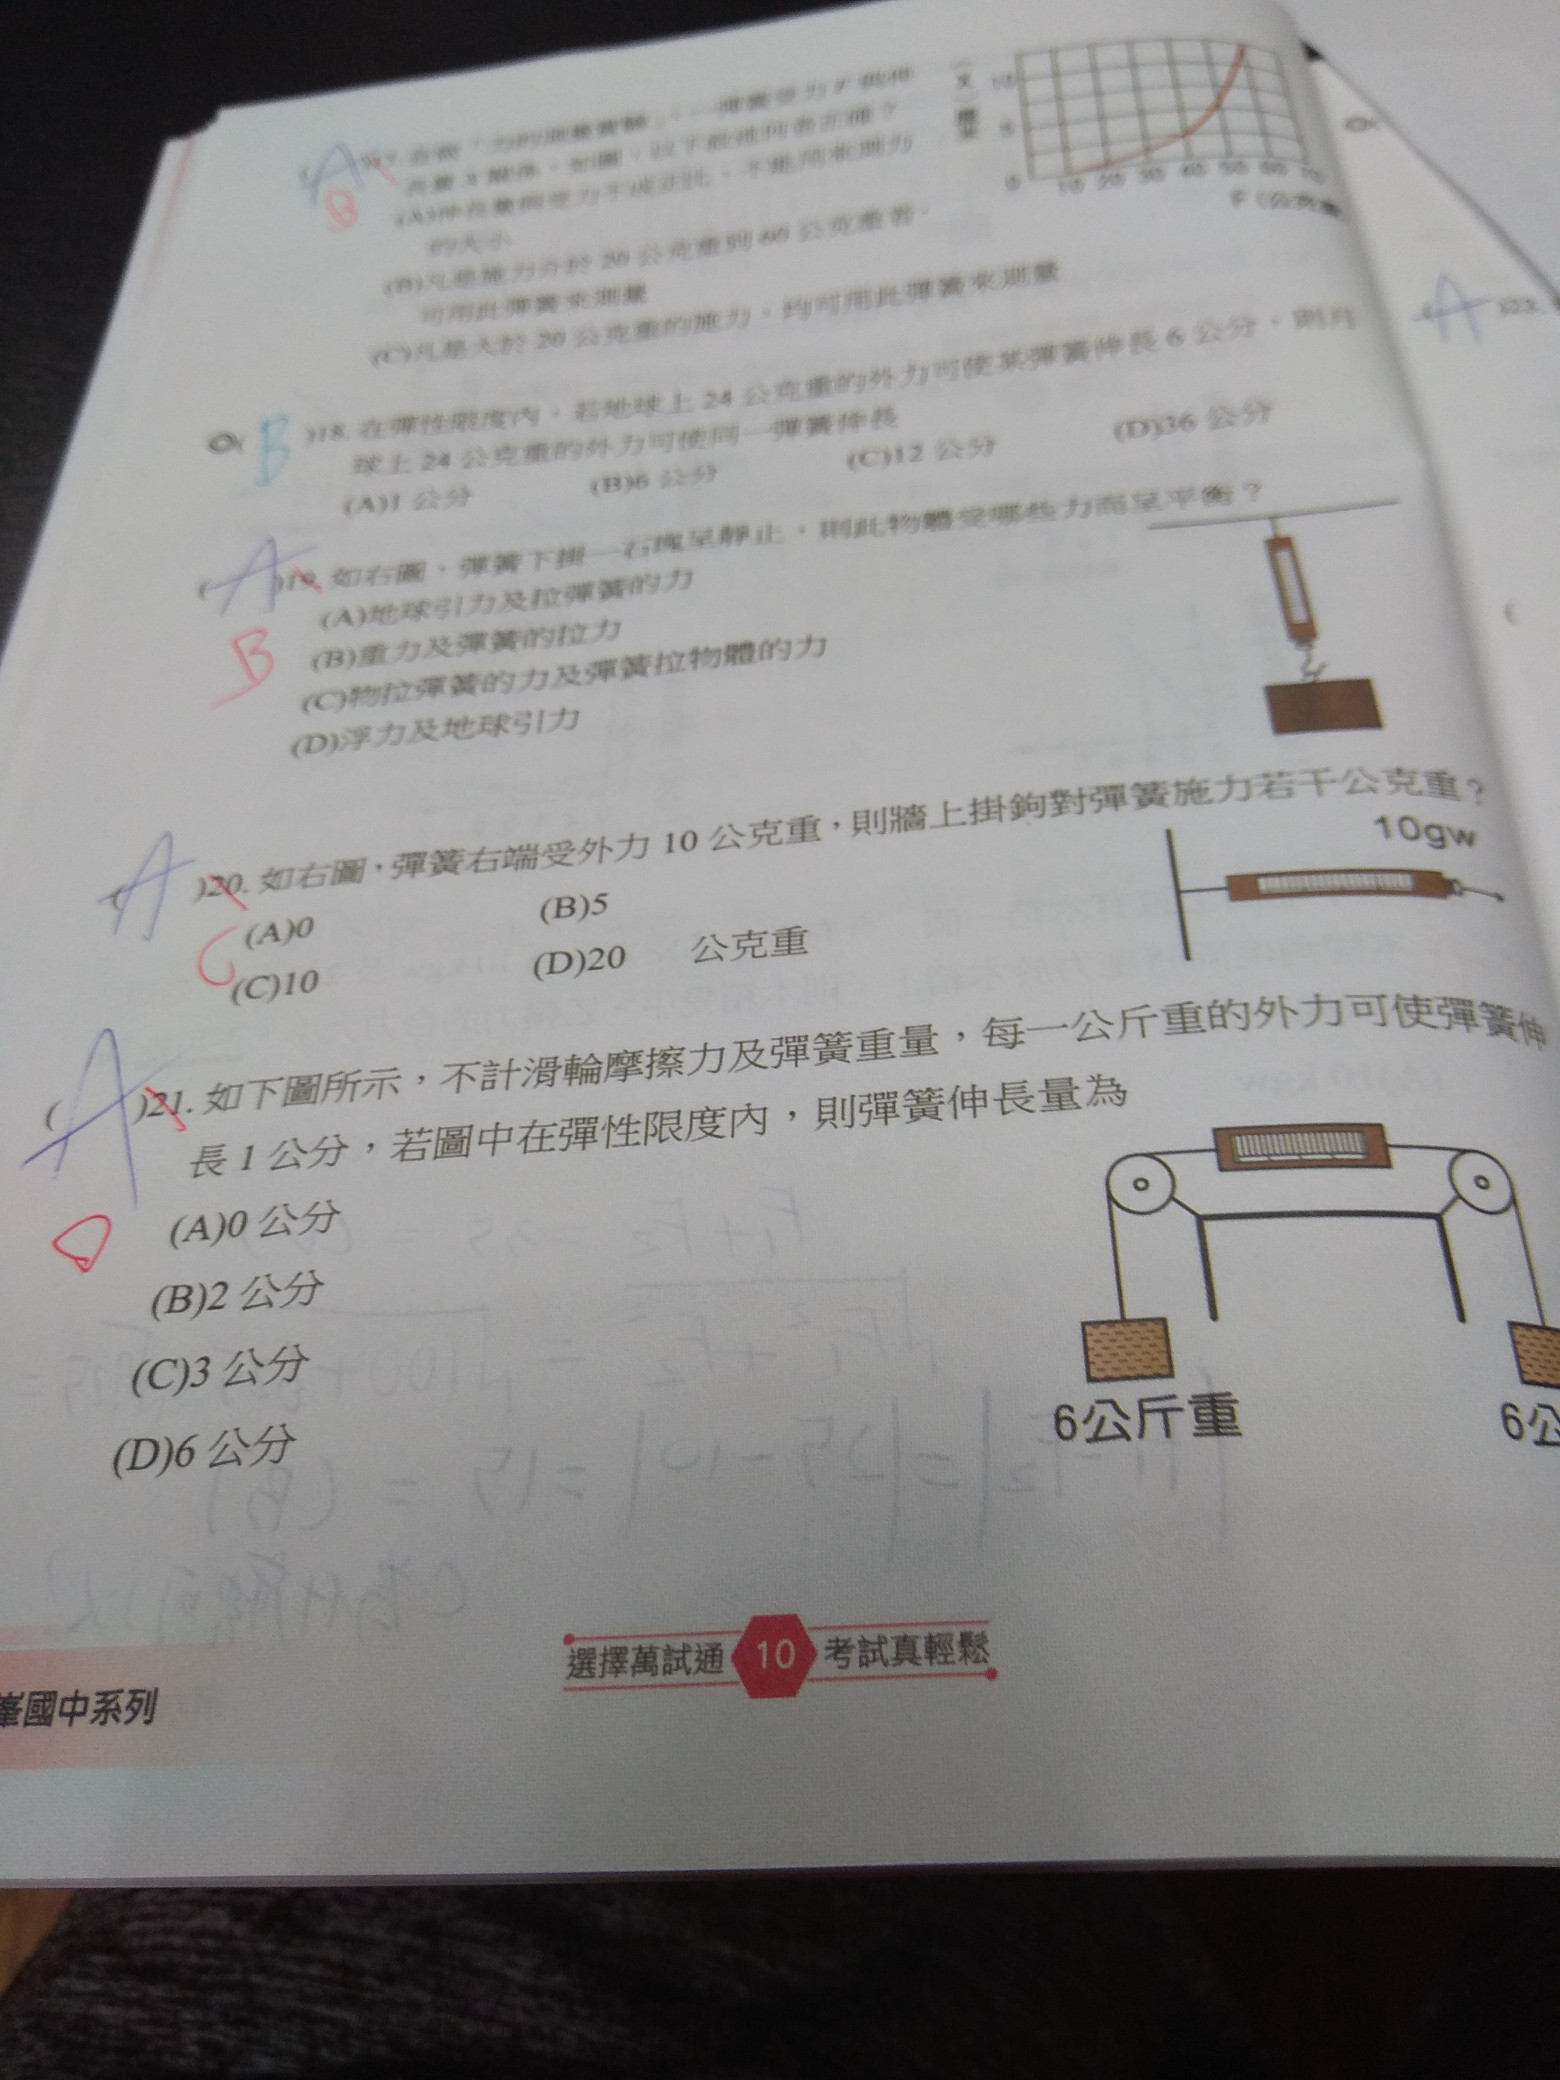 10
5
0 10 20 30 40 50 60 70
F(公克重
的大小
(B)凡是施力介於 20 公克重到 60 公克重者，
可用此彈簧來測量
(C)凡是大於 20 公克重的施力，均可用此彈簧來測量
A
B
( A )23.
( B )18. 在彈性限度內，若地球上 24 公克重的外力可使某彈簧伸長 6 公分，則月
球上 24 公克重的外力可使同一彈簧伸長
(A)1 公分 (B)6 公分 (C)12 公分 (D)36 公分
( A )19. 如右圖，彈簧下掛一石塊呈靜止，則此物體受哪些力而呈平衡？
B
(A)地球引力及拉彈簧的力
(B)重力及彈簧的拉力
(C)物拉彈簧的力及彈簧拉物體的力
(D)浮力及地球引力
( A )20. 如右圖，彈簧右端受外力 10 公克重，則牆上掛鉤對彈簧施力若干公克重？
10gw
(A)0 (B)5
C
(C)10 (D)20 公克重
( A )21. 如下圖所示，不計滑輪摩擦力及彈簧重量，每一公斤重的外力可使彈簧伸
長 1 公分，若圖中在彈性限度內，則彈簧伸長量為
D
(A)0 公分
(B)2 公分
(C)3 公分
(D)6 公分
6公斤重
6公
選擇萬試通 10 考試真輕鬆
峯國中系列